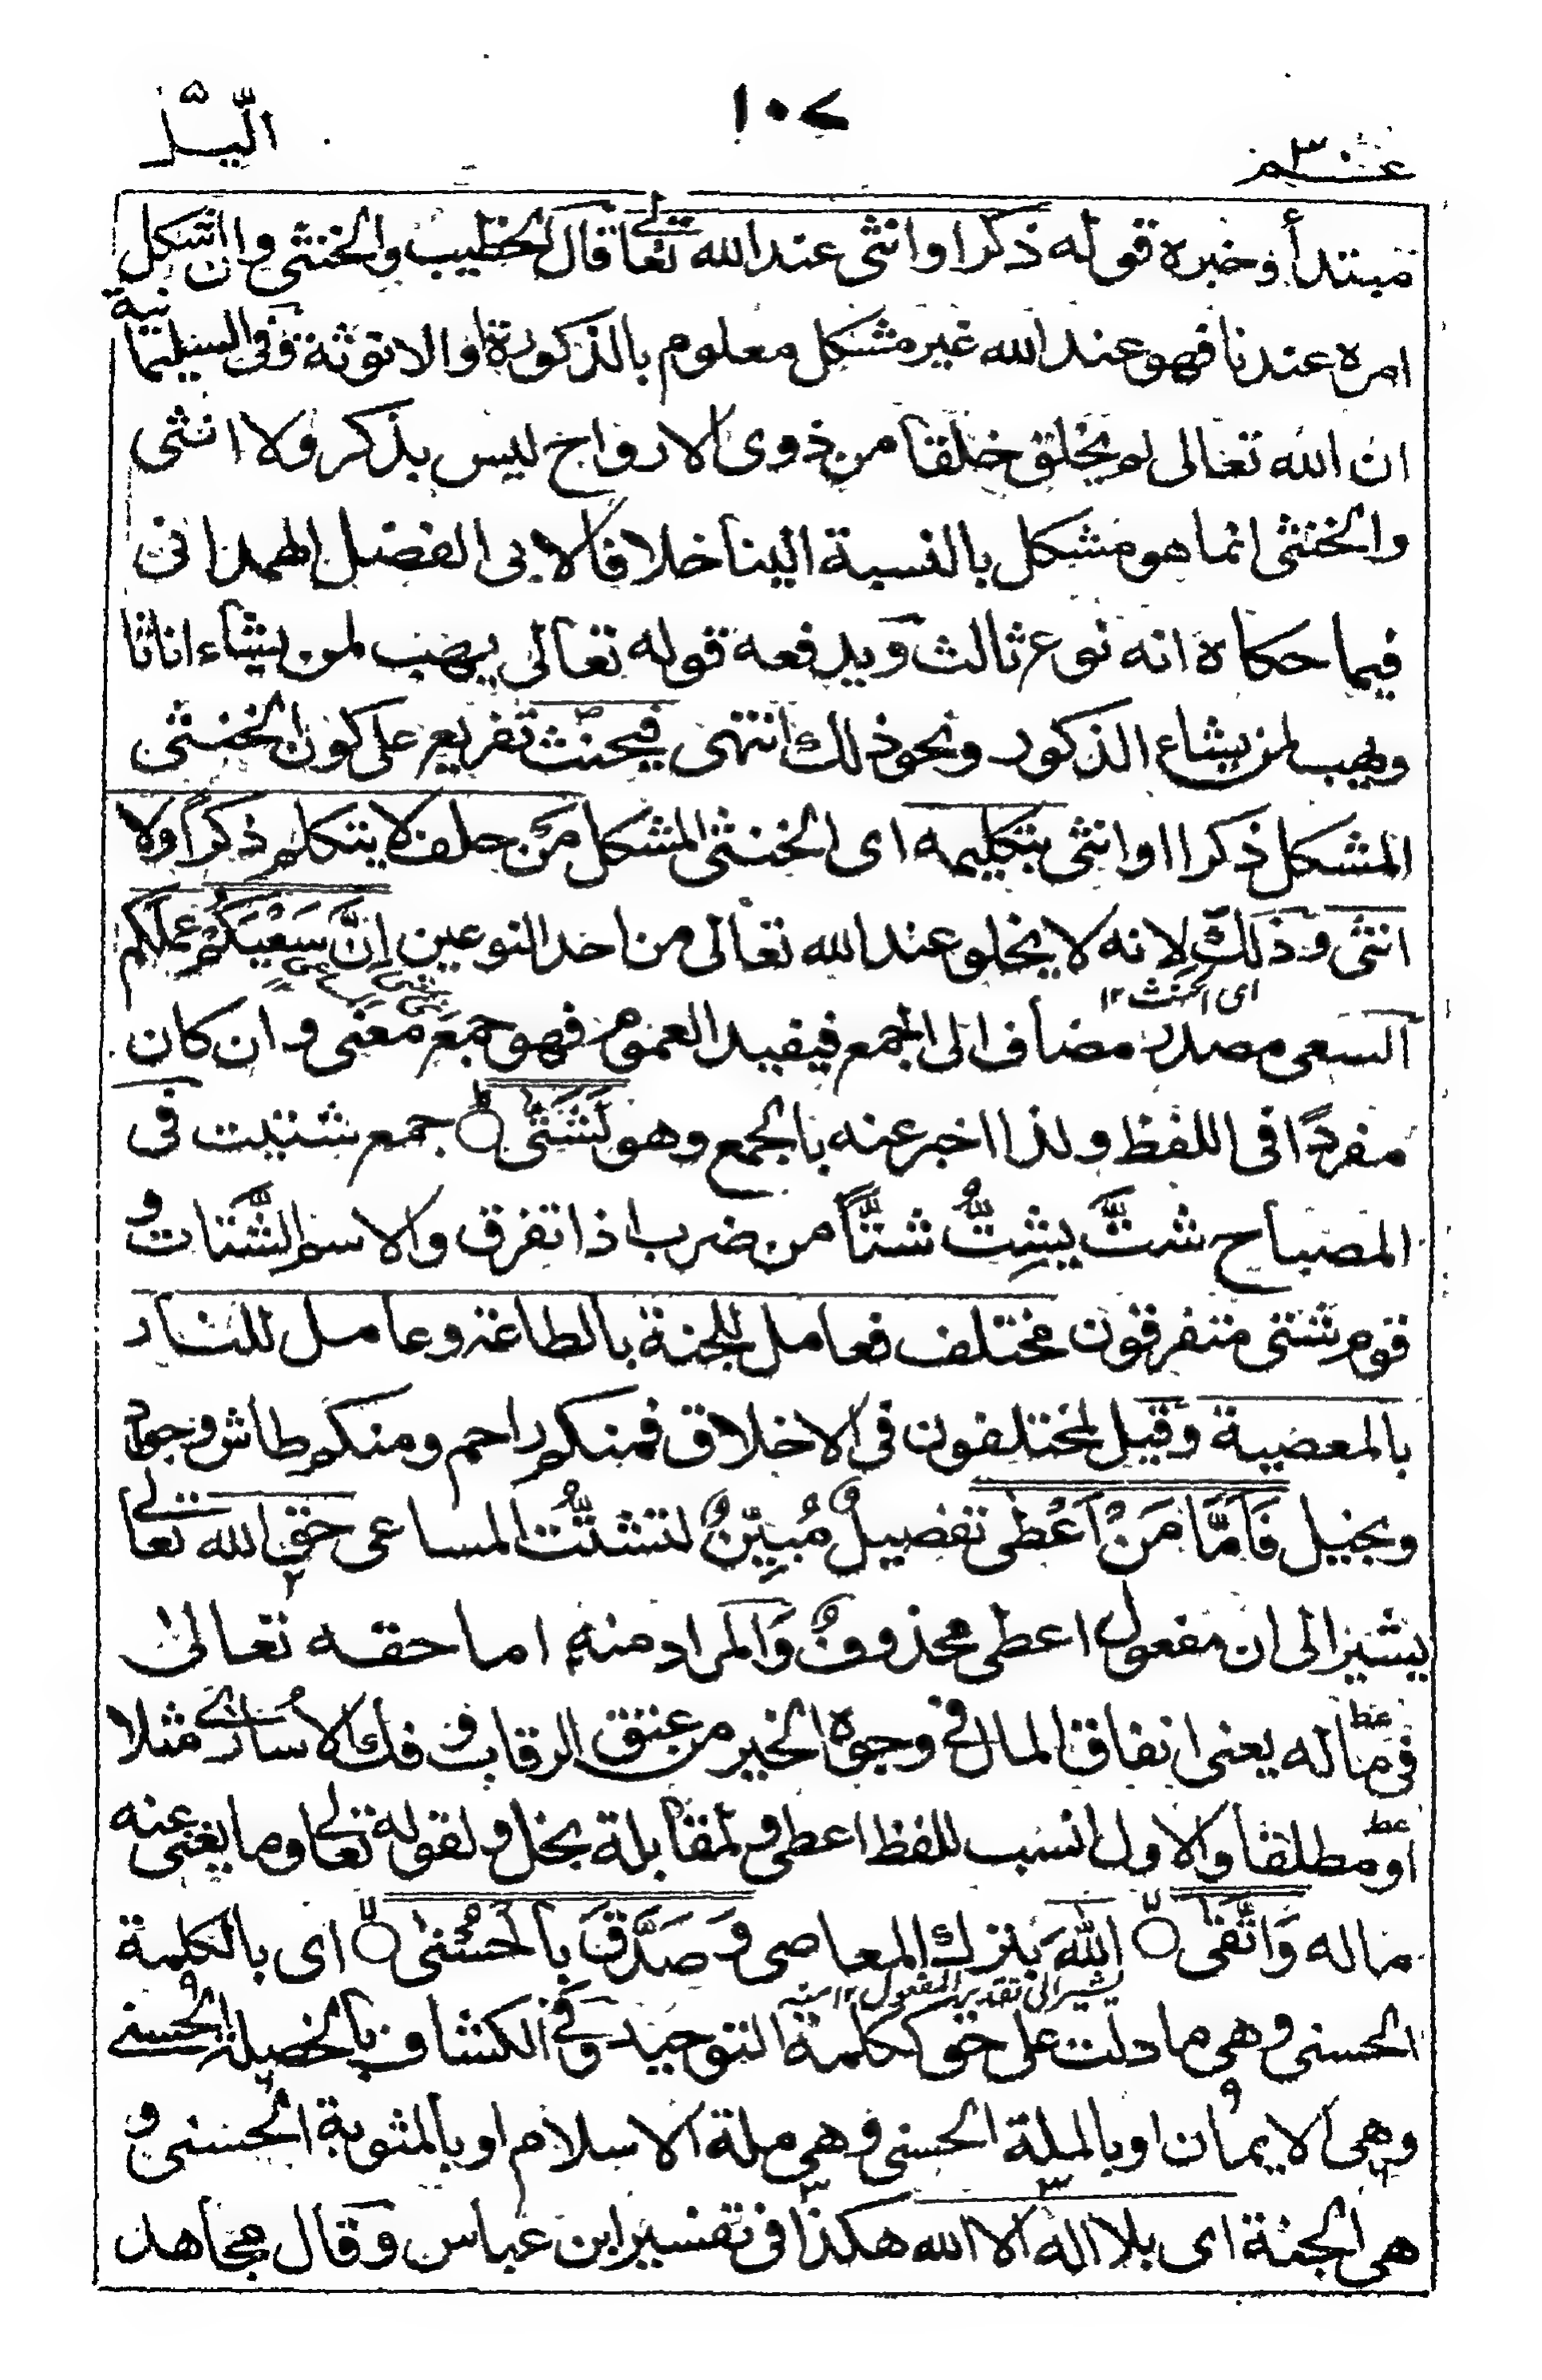 عـم ٣٠
١٠٧
الّيل
مبتدأ وخبره قوله ذكرا وانثى عند الله تعالى قال الخطيب والخنثى وان اشكل
امره عندنا فهو عند الله غير مشكل معلوم بالذكورة او الانوثة وفى السليمانية
ان الله تعالى لم يخلق خلقا من ذوى الارواح ليس بذكر ولا انثى
والخنثى انما هو مشكل بالنسبة الينا خلافا لابى الفضل الهمدانى
فيما حكاه انه نوع ثالث ويدفعه قوله تعالى يهب لمن يشاء اناثا
ويهب لمن يشاء الذكور ونحو ذلك انتهى فيحنث تفريع على كون الخنثى
المشكل ذكرا اوانثى بتكليمه اى الخنثى المشكل مَن حلف لا يتكلم ذكراً ولا
انثى وذلك لانه لا يخلو عند الله تعالى من احد النوعين اِنَّ سَعْيَكُمْ عملكم
اى الحنث ١٢
السعى مصدر مضاف الى الجمع فيفيد العموم فهو جمع معنى وان كان
مفردًا فى اللفظ ولذا اخبر عنه بالجمع وهو لَشَتّٰى جمع شتيت فى
المصباح شتَّ يشِتُّ شتًّا من ضرب اذا تفرق والاسم الشَّتات و
قوم شتى متفرقون مختلف فعامل للجنة بالطاعة وعامل للنار
بالمعصية وقيل لمختلفون فى الاخلاق فمنكم راحم ومنكم طاش وجواد
وبخيل فَاَمَّا مَنْ اَعْطٰى تفصيلٌ مُبيِّنٌ لتشتُّت المساعى حق الله تعالى
يشير الى ان مفعول اعطى محذوفٌ وَالمراد منه اما حقه تعالىٰ
فى ماله يعنى انفاق المال فى وجوه الخير من عتق الرقاب وفك الاُسارى مثلا
او مطلقا والاول انسب للفظ اعطى ولمقابلة بخل ولقوله تعالى وما يغنى عنه
ماله وَاتَّقٰى اللهَ بترك المعاصى وَ صَدَّقَ بِالْحُسْنٰى اى بالكلمة
يشير الى تقدير المفعول ١٢ منه
الحسنى وهى ما دلت على حق ككلمة التوحيد وفى الكشاف بالخصلة الحسنى
وهى الايمان او بالملة الحسنى وهى ملة الاسلام او بالمثوبة الحسنى و
هى الجنة اى بلا اله الا الله هكذا فى تفسير ابن عباس وقال مجاهد